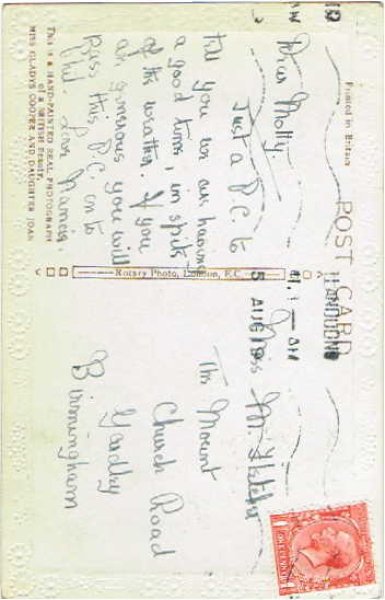 POST CARD
Printed in Britain
Dear Molly.
Just a P.C. to
tell you we are having
a good time, in spite
of the weather. If you
are generous you will
pass this P.C. on to
Phil. Love Nancie.
This is a HAND-PAINTED REAL PHOTOGRAPH
of a British Beauty.
MISS GLADYS COOPER AND DAUGHTER JOAN
Rotary Photo, London, E.C.
5 AUG 19
Miss M.
The Mount
Church Road
Yardley
Birmingham